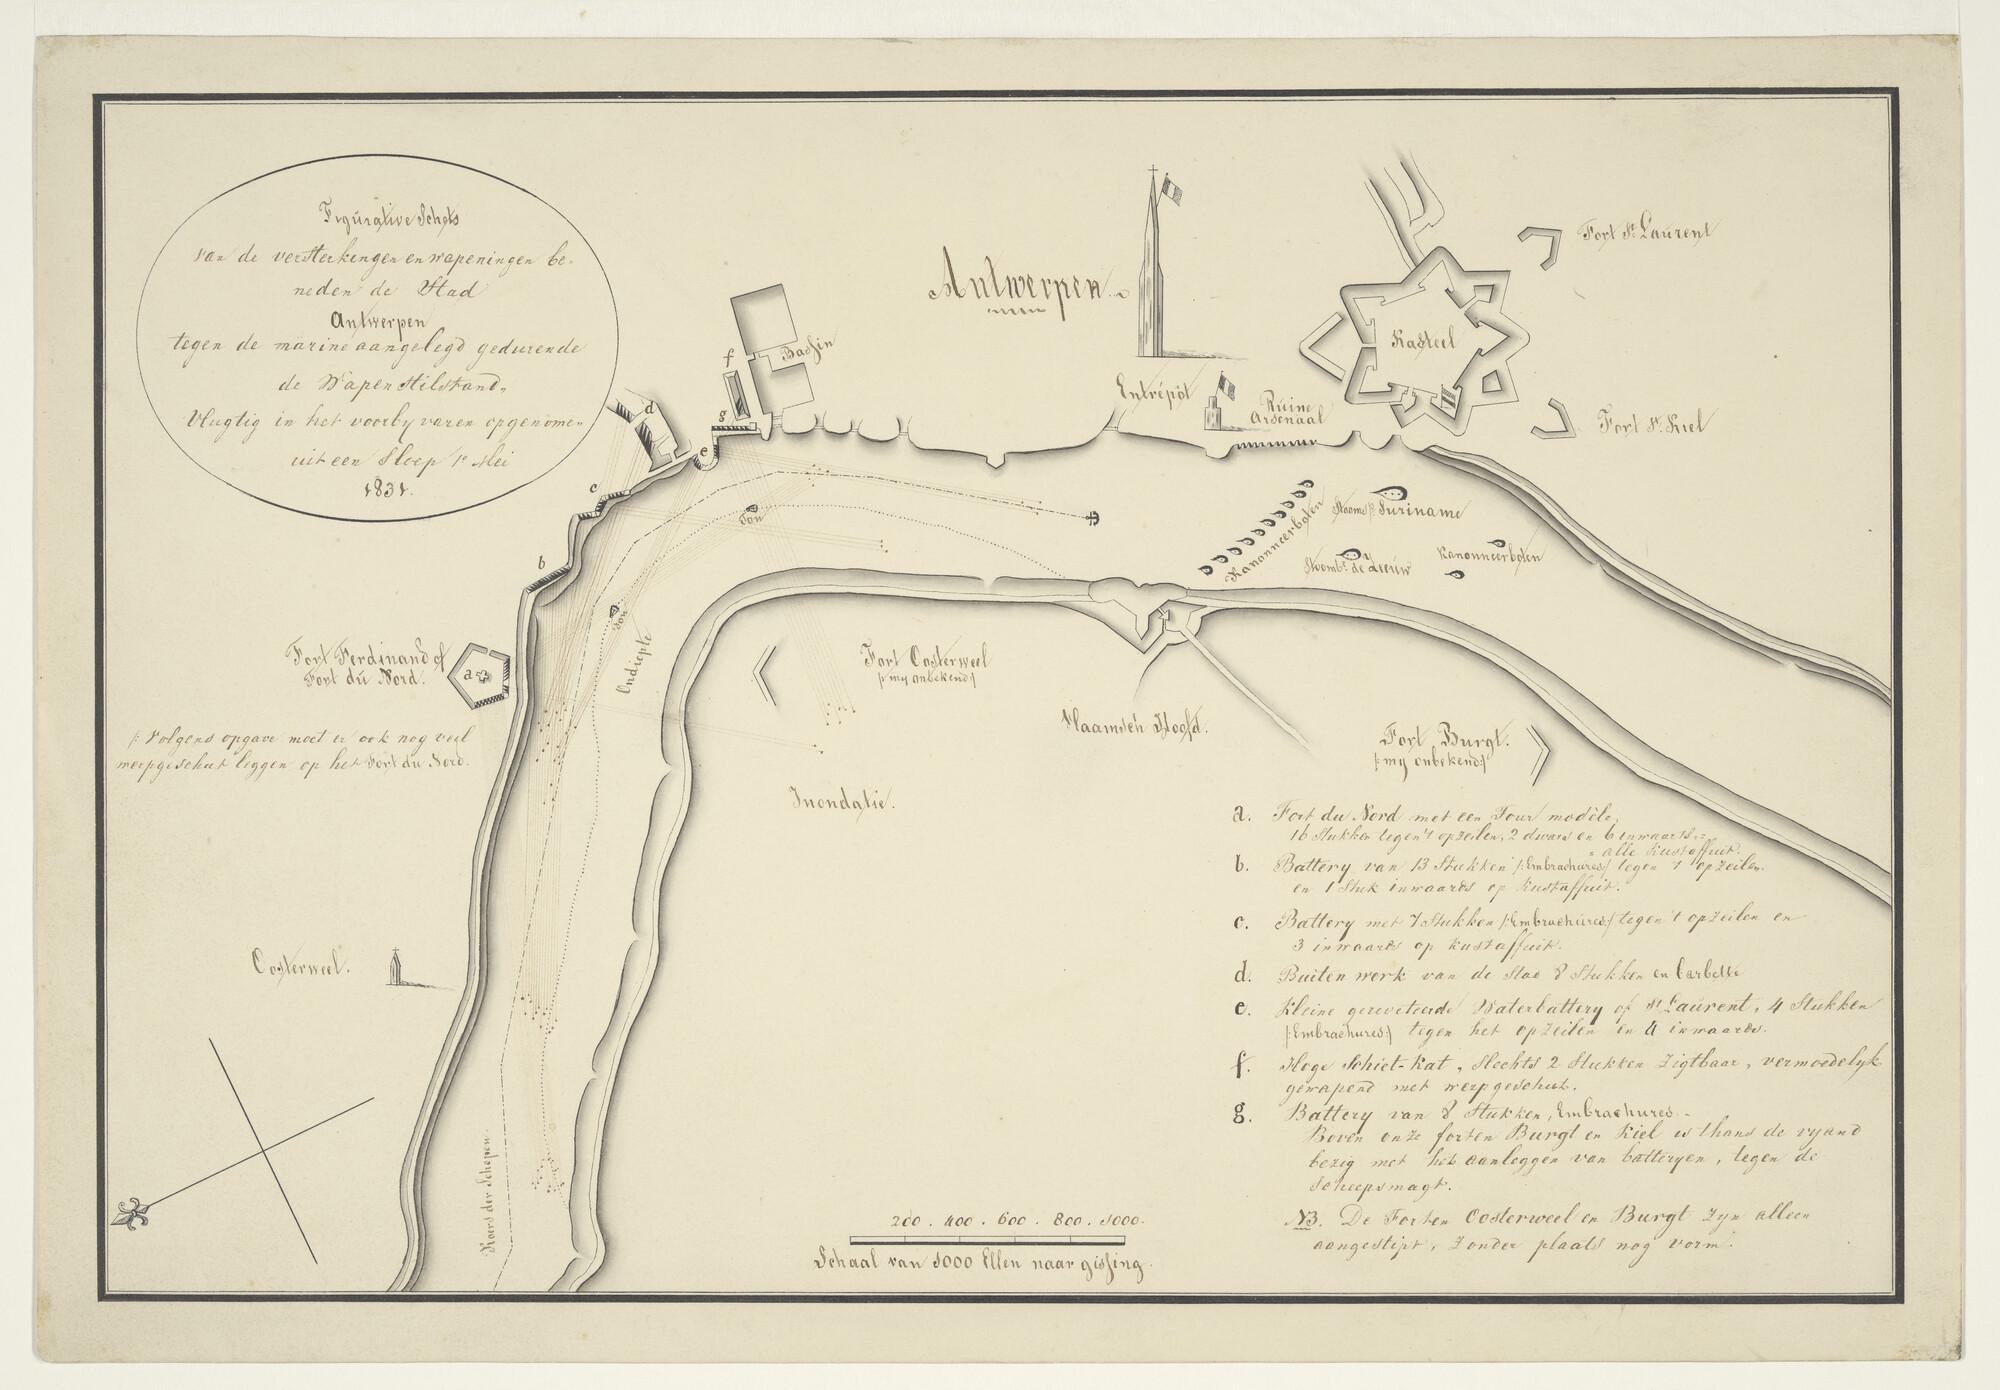 Figurative Schets
van de versterkingen en wapeningen be-
neden de Stad
Antwerpen
tegen de marine aangelegd gedurende
de Wapenstilstand.
Vlugtig in het voorby varen opgenomen
uit een Sloep 1e Mei
1831.
Antwerpen
Fort St. Laurent
Kasteel
Fort St. Kiel
Bassin
Entrépôt
Ruine
Arsenaal
f
g
d
e
c
b
a
Ton
Ton
Ondiepte
Kanonneerboten
Stoomb. Suriname
Stoombt. de Leeuw
Kanonneerboten
Fort Ferdinand of
Fort du Nord.
/: Volgens opgave moet er ook nog veel
werpgeschut leggen op het Fort du Nord.
Fort Oosterweel
/: my onbekend:/
Vlaamsch Hoofd.
Fort Burgt.
/: my onbekend:/
Inondatie.
Oosterweel.
Koers der Schepen.
a. Fort du Nord met een Tour modèle,
16 Stukken tegen 't opzeilen, 2 dwars en 6 inwaarts =
= alle Kustaffuit.
b. Battery van 13 Stukken /:Embrachures:/ tegen 't opzeilen
en 1 Stuk inwaards op Kustaffuit.
c. Battery met 7 Stukken /:Embrachures:/ tegen 't opzeilen en
3 inwaards op Kustaffuit.
d. Buiten werk van de Stad 8 Stukken en barbette
e. Kleine gereveteerde Waterbattery of St. Laurent, 4 Stukken
/:Embrachures:/ tegen het opzeilen en 4 inwaards.
f. Hoge Schiet-Kat, Slechts 2 Stukken Zigtbaar, vermoedelyk
gewapend met werpgeschut.
g. Battery van 8 Stukken, Embrachures.-
Boven onze forten Burgt en Kiel is thans de vyand
bezig met het aanleggen van batteryen, tegen de
Scheepsmagt.
NB. De Forten Oosterweel en Burgt Zyn alleen
aangestipt, Zonder plaats nog vorm.
200 . 400 . 600 . 800 . 1000.
Schaal van 1000 Ellen naar gissing.